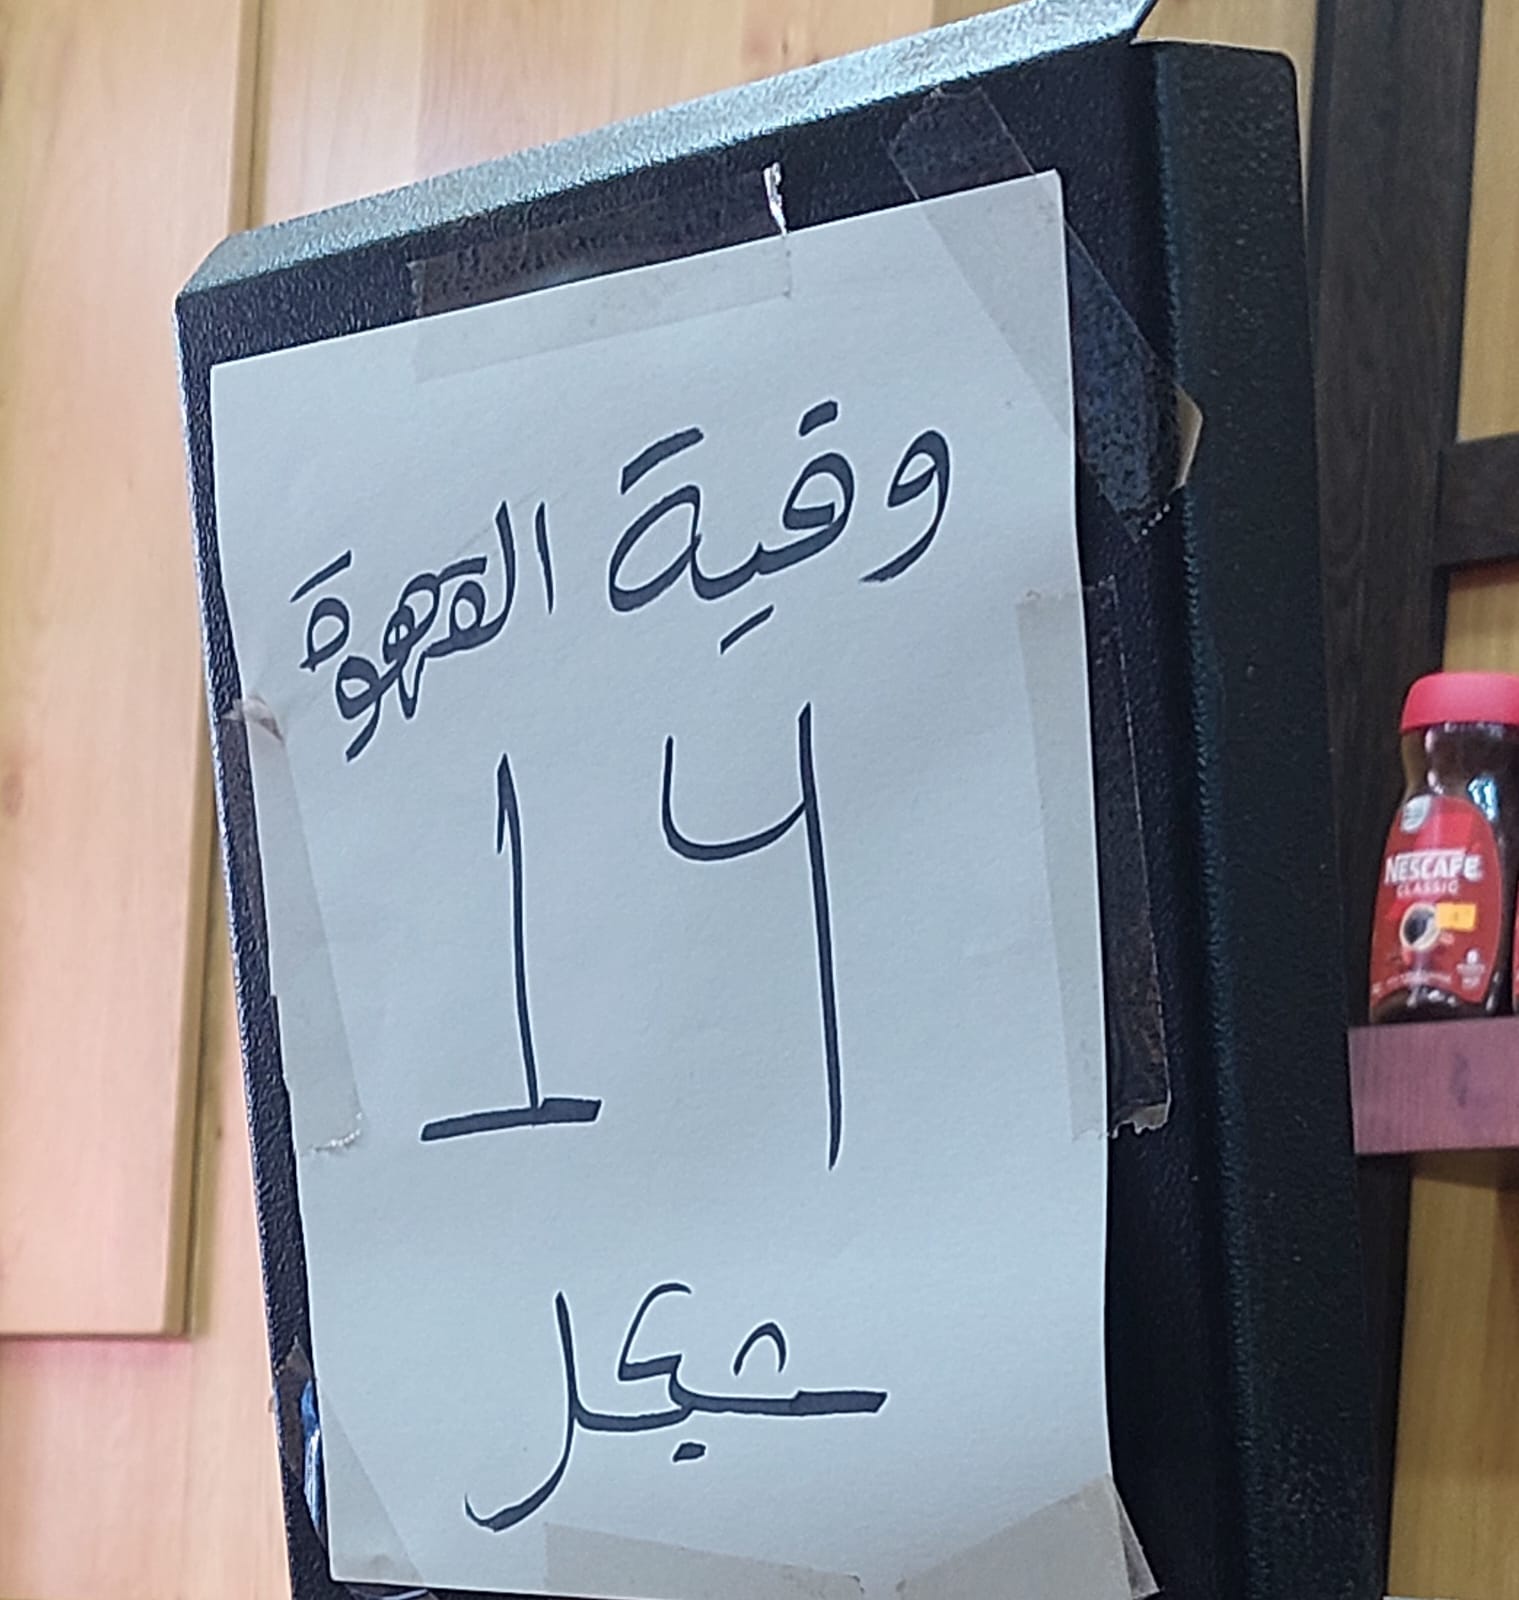 وقية القهوة
14
شيكل
NESCAFÉ
CLASSIC